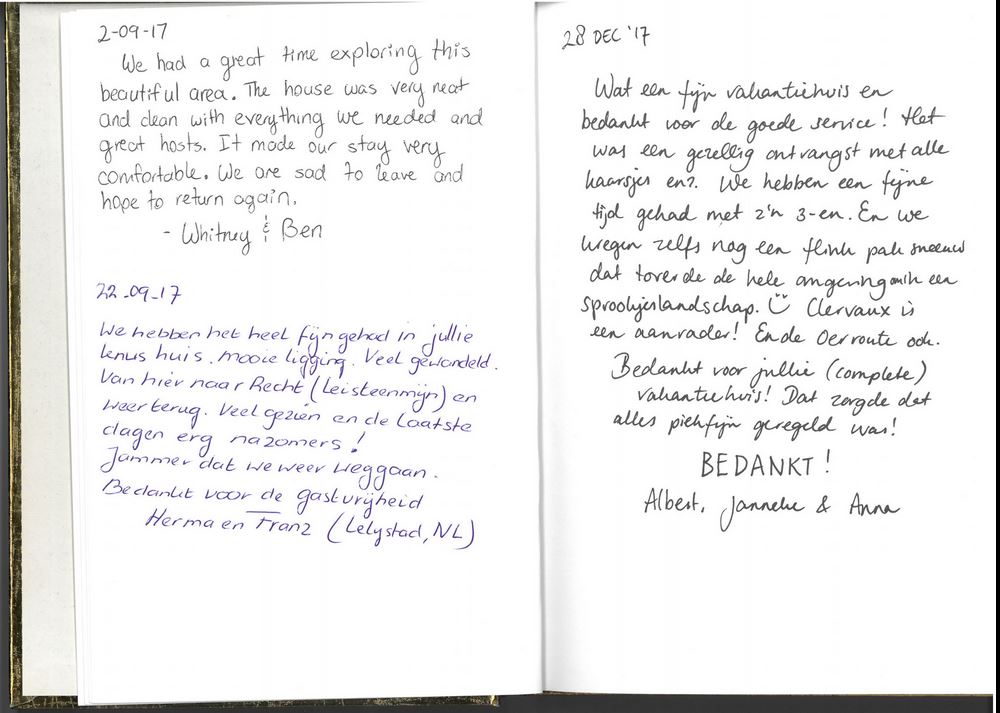 2-09-17
We had a great time exploring this
beautiful area. The house was very neat
and clean with everything we needed and
great hosts. It made our stay very
comfortable. We are sad to leave and
hope to return again.
- Whitney & Ben
22-09-17
We hebben het heel fijn gehad in jullie
knus huis. mooie ligging. Veel gewandeld.
Van hier naar Recht (Leisteenmijn) en
weer terug. Veel gezien en de Laatste
dagen erg nazomers!
Jammer dat we weer weggaan.
Bedankt voor de gastvrijheid
Herma en Franz (Lelystad, NL)
28 DEC '17
Wat een fijn vakantiehuis en
bedankt voor de goede service! Het
was een gezellig ontvangst met alle
kaarsjes enz. We hebben een fijne
tijd gehad met z'n 3-en. En we
kregen zelfs nog een flink pak sneeuw
dat toverde de hele omgeving in een
sprookjeslandschap. Clervaux is
een aanrader! En de Oerroute ook.
Bedankt voor jullie (complete)
vakantiehuis! Dat zorgde dat
alles piekfijn geregeld was!
BEDANKT!
Albert, Janneke & Anna